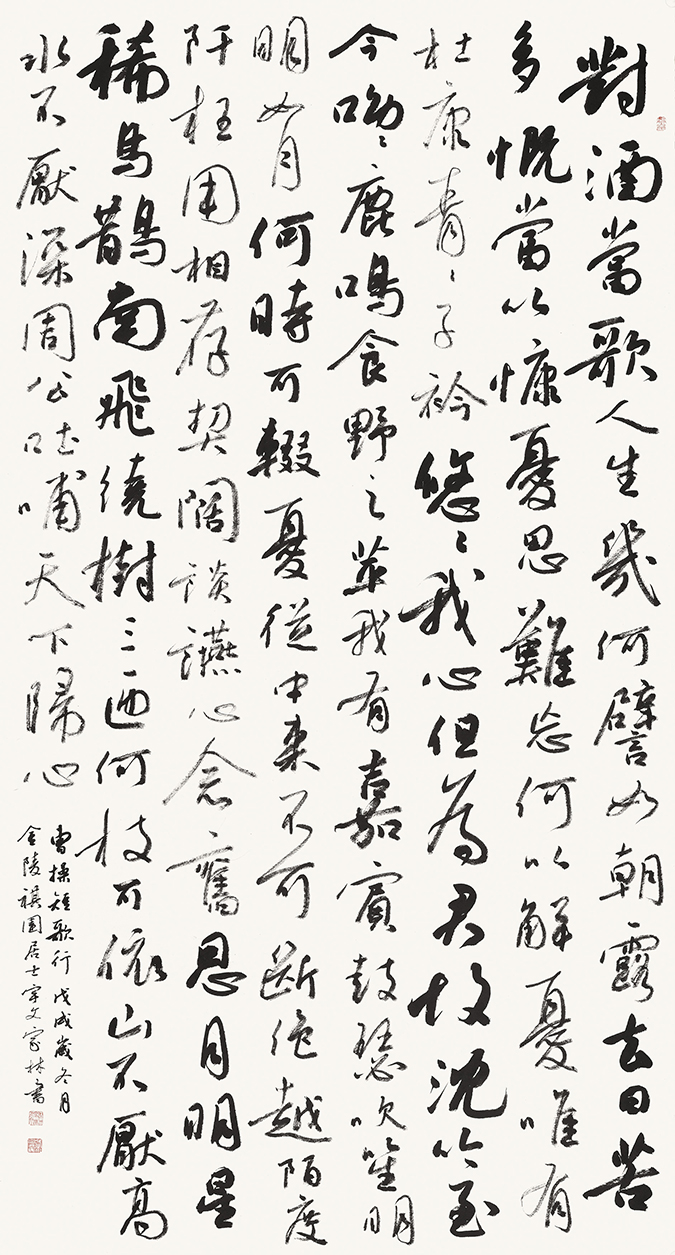 對酒當歌人生幾何譬如朝露去日苦
多慨當以慷憂思難忘何以解憂唯有
杜康青〻子衿悠〻我心但為君故沈吟至
今呦〻鹿鳴食野之苹我有嘉賓鼓瑟吹笙明
明如月何時可輟憂從中來不可斷絕越陌度
阡枉用相存契闊談讌心念舊恩月明星
稀烏鵲南飛繞樹三匝何枝可依山不厭高
水不厭深周公吐哺天下歸心
曹操短歌行 戊戌歲冬月
金陵祺園居士宇文家林書